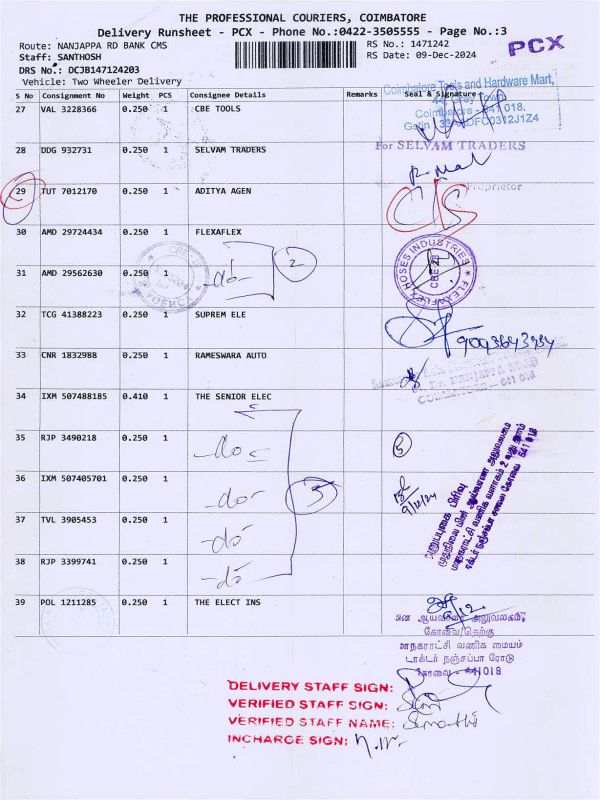 THE PROFESSIONAL COURIERS, COIMBATORE
Delivery Runsheet - PCX - Phone No.:0422-3505555 - Page No.:3
Route: NANJAPPA RD BANK CMS
RS No.: 1471242
PCX
Staff: SANTHOSH
RS Date: 09-Dec-2024
DRS No.: DCJB147124203
Vehicle: Two Wheeler Delivery
S No Consignment No Weight PCS Consignee Details Remarks Seal & Signature
Coimbatore Tools and Hardware Mart,
27 VAL 3228366 0.250 1 CBE TOOLS
Coimbatore - 641 018.
28 DDG 932731 0.250 1 SELVAM TRADERS
For SELVAM TRADERS
Proprietor
29 TUT 7012170 0.250 1 ADITYA AGEN
C/S
30 AMD 29724434 0.250 1 FLEXAFLEX
FLEXAFLEX HOSES INDUSTRIES
31 AMD 29562630 0.250 1 -do- 2
32 TCG 41388223 0.250 1 SUPREM ELE
33 CNR 1832988 0.250 1 RAMESWARA AUTO
34 IXM 507488185 0.410 1 THE SENIOR ELEC
35 RJP 3490218 0.250 1 -do- 5
36 IXM 507405701 0.250 1 -do- 5
9/12/24
37 TVL 3905453 0.250 1 -do-
38 RJP 3399741 0.250 1 -do-
அனுப்புகை பிரிவு
641 018
39 POL 1211285 0.250 1 THE ELECT INS
9/12
கோவை/தெற்கு
மாநகராட்சி வணிக மையம்
டாக்டர் நஞ்சப்பா ரோடு
DELIVERY STAFF SIGN:
VERIFIED STAFF SIGN:
VERIFIED STAFF NAME:
INCHARGE SIGN: